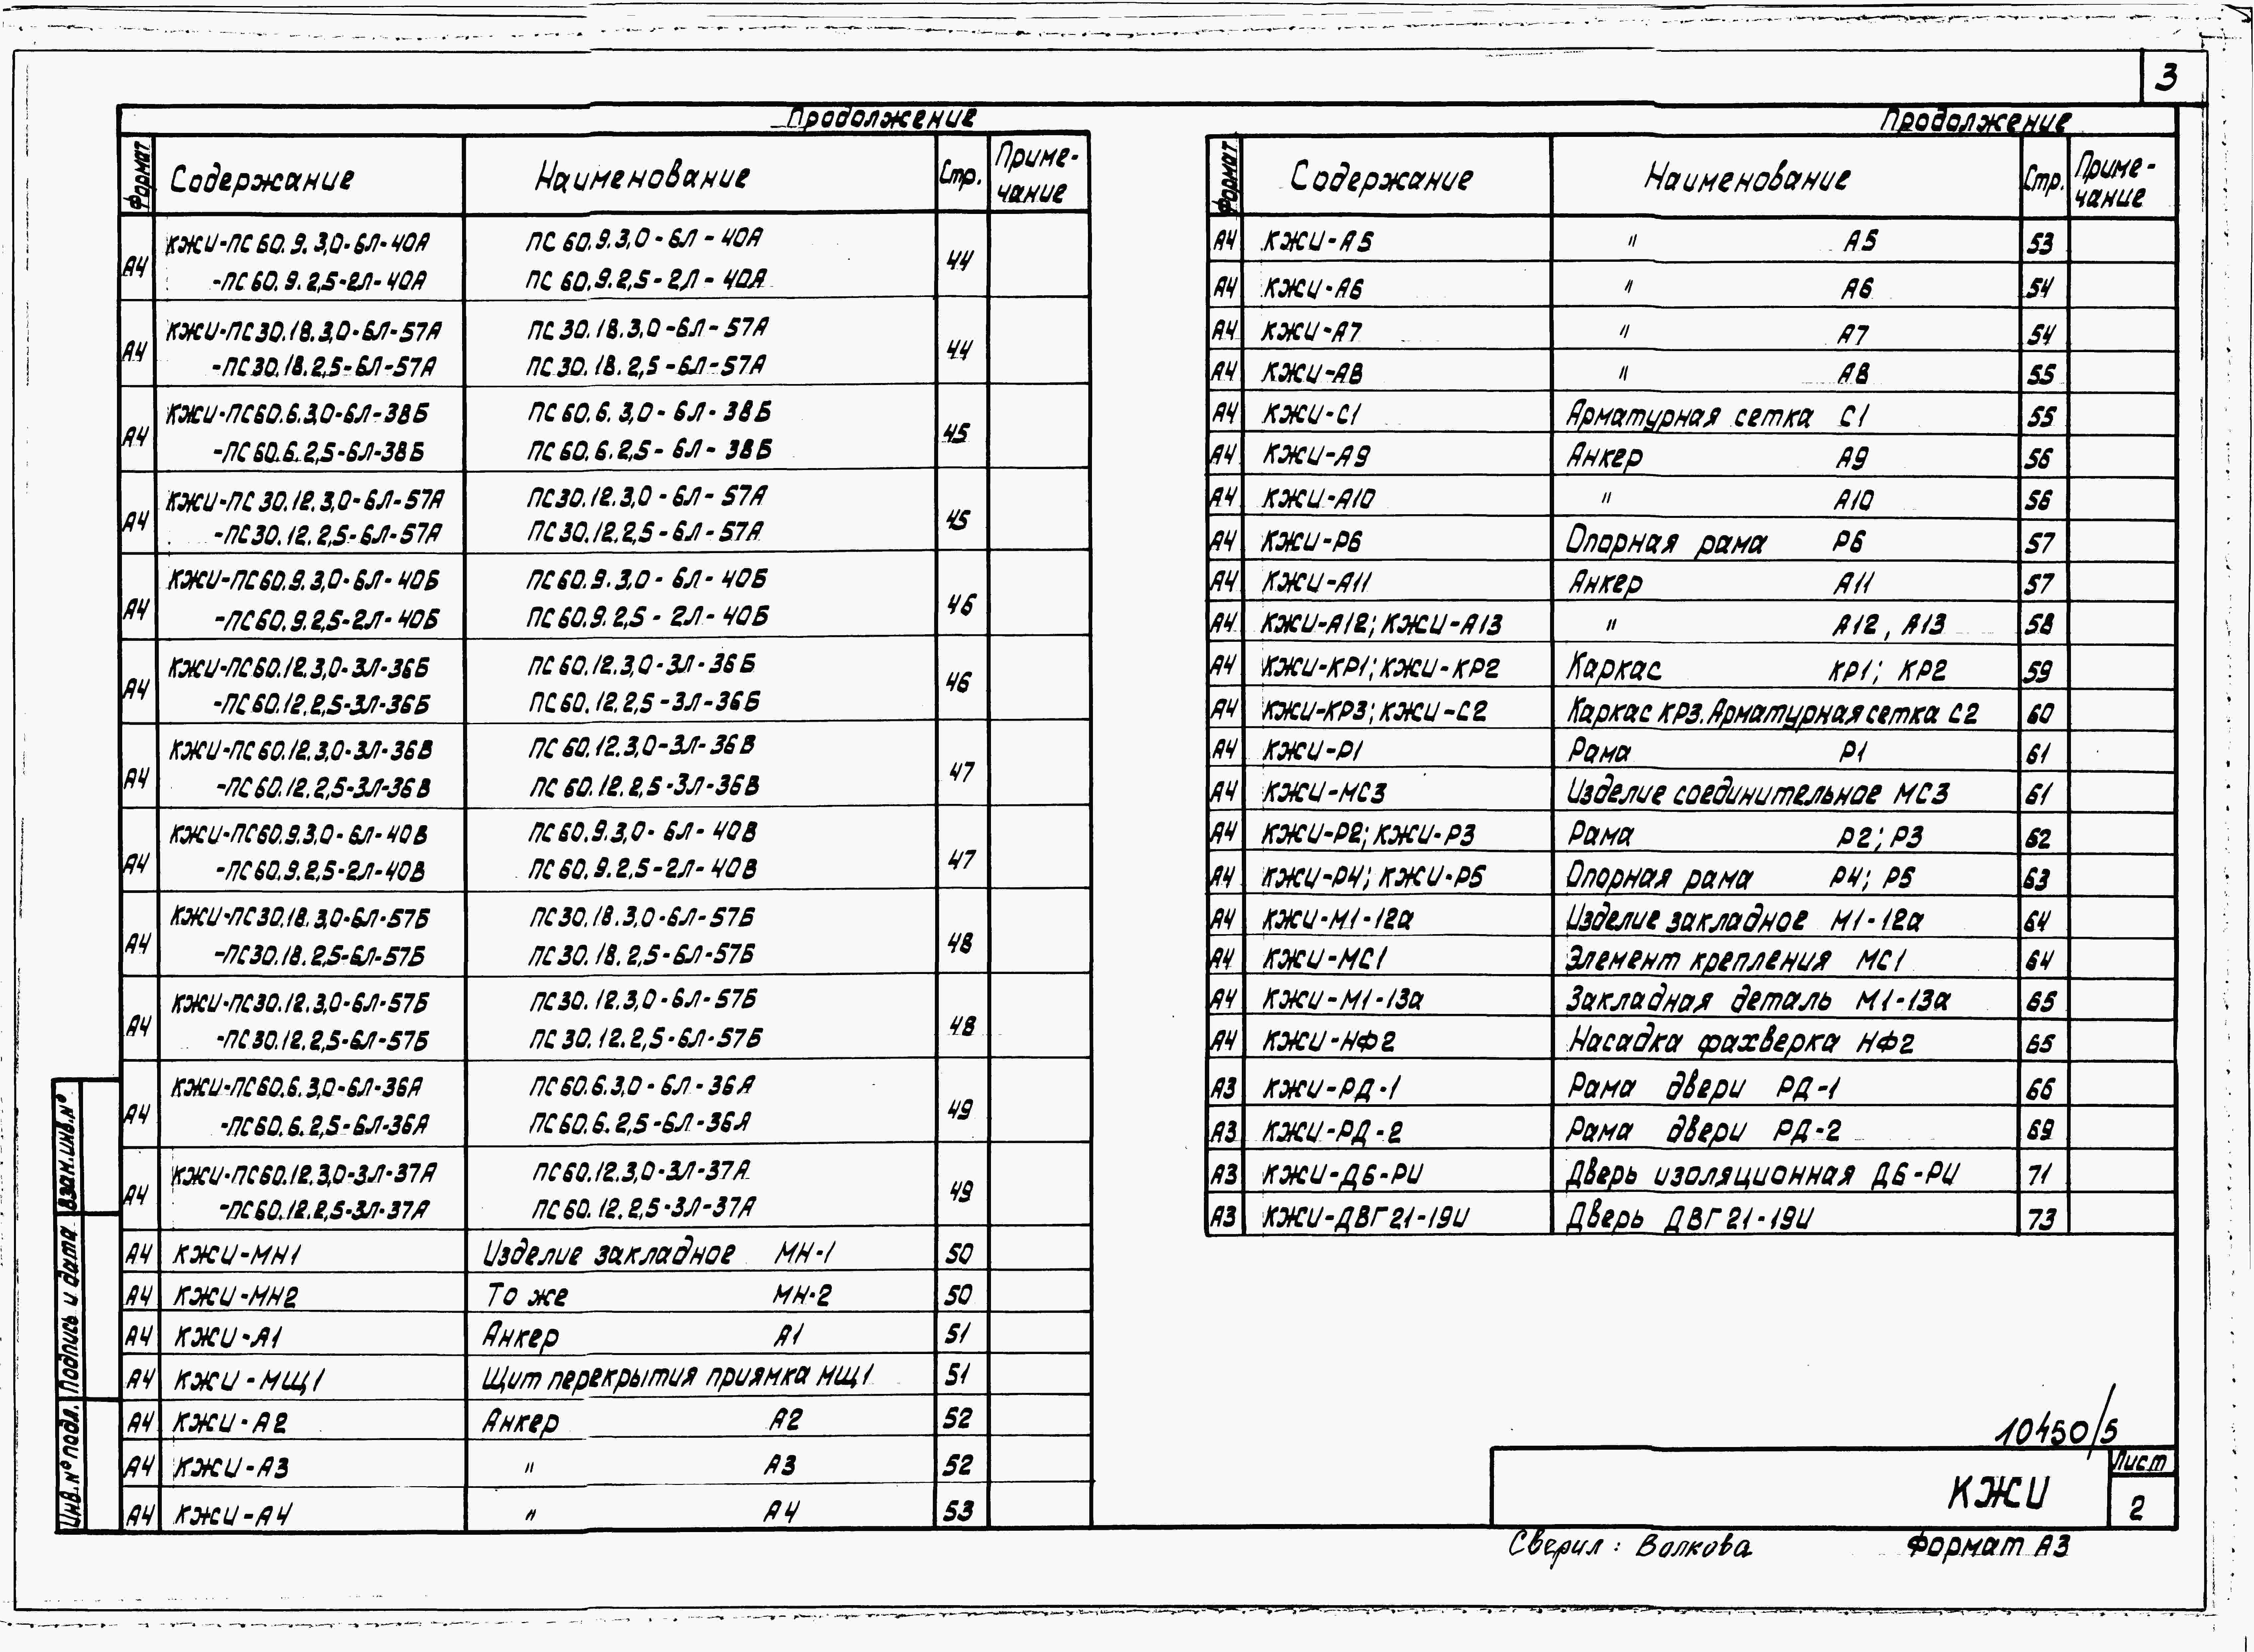 3
Продолжение
Формат Содержание Наименование Стр. Приме-
чание
А4 КЖИ-ПС60.9.3,0-6Л-40А ПС60.9.3,0-6Л-40А 44
-ПС60.9.2,5-2Л-40А ПС60.9.2,5-2Л-40А
А4 КЖИ-ПС30.18.3,0-6Л-57А ПС30.18.3,0-6Л-57А 44
-ПС30.18.2,5-6Л-57А ПС30.18.2,5-6Л-57А
А4 КЖИ-ПС60.6.3,0-6Л-38Б ПС60.6.3,0-6Л-38Б 45
-ПС60.6.2,5-6Л-38Б ПС60.6.2,5-6Л-38Б
А4 КЖИ-ПС30.12.3,0-6Л-57А ПС30.12.3,0-6Л-57А 45
-ПС30.12.2,5-6Л-57А ПС30.12.2,5-6Л-57А
А4 КЖИ-ПС60.9.3,0-6Л-40Б ПС60.9.3,0-6Л-40Б 46
-ПС60.9.2,5-2Л-40Б ПС60.9.2,5-2Л-40Б
А4 КЖИ-ПС60.12.3,0-3Л-36Б ПС60.12.3,0-3Л-36Б 46
-ПС60.12.2,5-3Л-36Б ПС60.12.2,5-3Л-36Б
А4 КЖИ-ПС60.12.3,0-3Л-36В ПС60.12.3,0-3Л-36В 47
-ПС60.12.2,5-3Л-36В ПС60.12.2,5-3Л-36В
А4 КЖИ-ПС60.9.3,0-6Л-40В ПС60.9.3,0-6Л-40В 47
-ПС60.9.2,5-2Л-40В ПС60.9.2,5-2Л-40В
А4 КЖИ-ПС30.18.3,0-6Л-57Б ПС30.18.3,0-6Л-57Б 48
-ПС30.18.2,5-6Л-57Б ПС30.18.2,5-6Л-57Б
А4 КЖИ-ПС30.12.3,0-6Л-57Б ПС30.12.3,0-6Л-57Б 48
-ПС30.12.2,5-6Л-57Б ПС30.12.2,5-6Л-57Б
А4 КЖИ-ПС60.6.3,0-6Л-36А ПС60.6.3,0-6Л-36А 49
-ПС60.6.2,5-6Л-36А ПС60.6.2,5-6Л-36А
А4 КЖИ-ПС60.12.3,0-3Л-37А ПС60.12.3,0-3Л-37А 49
-ПС60.12.2,5-3Л-37А ПС60.12.2,5-3Л-37А
А4 КЖИ-МН1 Изделие закладное МН-1 50
А4 КЖИ-МН2 То же МН-2 50
А4 КЖИ-А1 Анкер А1 51
А4 КЖИ-МЩ1 Щит перекрытия приямка МЩ1 51
А4 КЖИ-А2 Анкер А2 52
А4 КЖИ-А3 " А3 52
А4 КЖИ-А4 " А4 53
Продолжение
Формат Содержание Наименование Стр. Приме-
чание
А4 КЖИ-А5 " А5 53
А4 КЖИ-А6 " А6 54
А4 КЖИ-А7 " А7 54
А4 КЖИ-А8 " А8 55
А4 КЖИ-С1 Арматурная сетка С1 55
А4 КЖИ-А9 Анкер А9 56
А4 КЖИ-А10 " А10 56
А4 КЖИ-Р6 Опорная рама Р6 57
А4 КЖИ-А11 Анкер А11 57
А4 КЖИ-А12; КЖИ-А13 " А12, А13 58
А4 КЖИ-КР1; КЖИ-КР2 Каркас КР1; КР2 59
А4 КЖИ-КР3; КЖИ-С2 Каркас КР3. Арматурная сетка С2 60
А4 КЖИ-Р1 Рама Р1 61
А4 КЖИ-МС3 Изделие соединительное МС3 61
А4 КЖИ-Р2; КЖИ-Р3 Рама Р2; Р3 62
А4 КЖИ-Р4; КЖИ-Р5 Опорная рама Р4; Р5 63
А4 КЖИ-М1-12а Изделие закладное М1-12а 64
А4 КЖИ-МС1 Элемент крепления МС1 64
А4 КЖИ-М1-13а Закладная деталь М1-13а 65
А4 КЖИ-НФ2 Насадка фахверка НФ2 65
А3 КЖИ-РД-1 Рама двери РД-1 66
А3 КЖИ-РД-2 Рама двери РД-2 69
А3 КЖИ-Д6-РИ Дверь изоляционная Д6-РИ 71
А3 КЖИ-ДВГ21-19И Дверь ДВГ21-19И 73
Инв.№подл. Подпись и дата Взам.инв.№
10450/5
КЖИ
Лист
2
Сверил: Волкова Формат А3